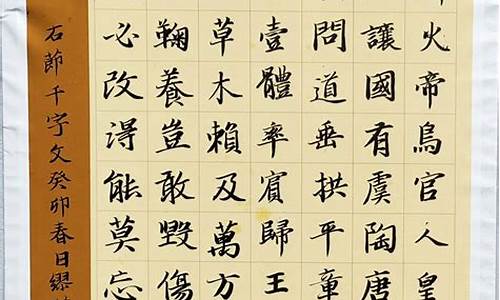 火帝鳥官人皇
讓國有虞陶唐
問道垂拱平章
壹體率賓歸王
草木賴及萬方
鞠養豈敢毀傷
必改得能莫忘
右節千字文癸卯春日繆